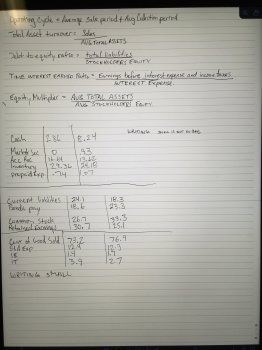 Operating Cycle = Average Sale period + Avg Collection period
Total Asset turnover: Sales
AVG TOTAL ASSETS
Debt to equity ratio = total liabilities
STOCKHOLDERS EQUITY
TIME INTEREST EARNED Ratio = Earnings before interest expense and income taxes
INTEREST Expense
Equity Multiplier = AVG TOTAL ASSETS
AVG STOCKHOLDERS EQUITY
Cash 2.86 8.24
Market Sec 0 .93
Acc Rec
Inventory 29.36 24.18
prepaid Exp .74 1.07
Current liabilities 24.1 18.3
Bonds pay 18.6 23.3
Common Stock 26.7 33.3
Retained Earnings 30.7 25.1
Cost of Good Sold 73.2 76.9
Sld Exp 12.3
IE 1.9
IT 3.9 2.7
WRITING SMALL